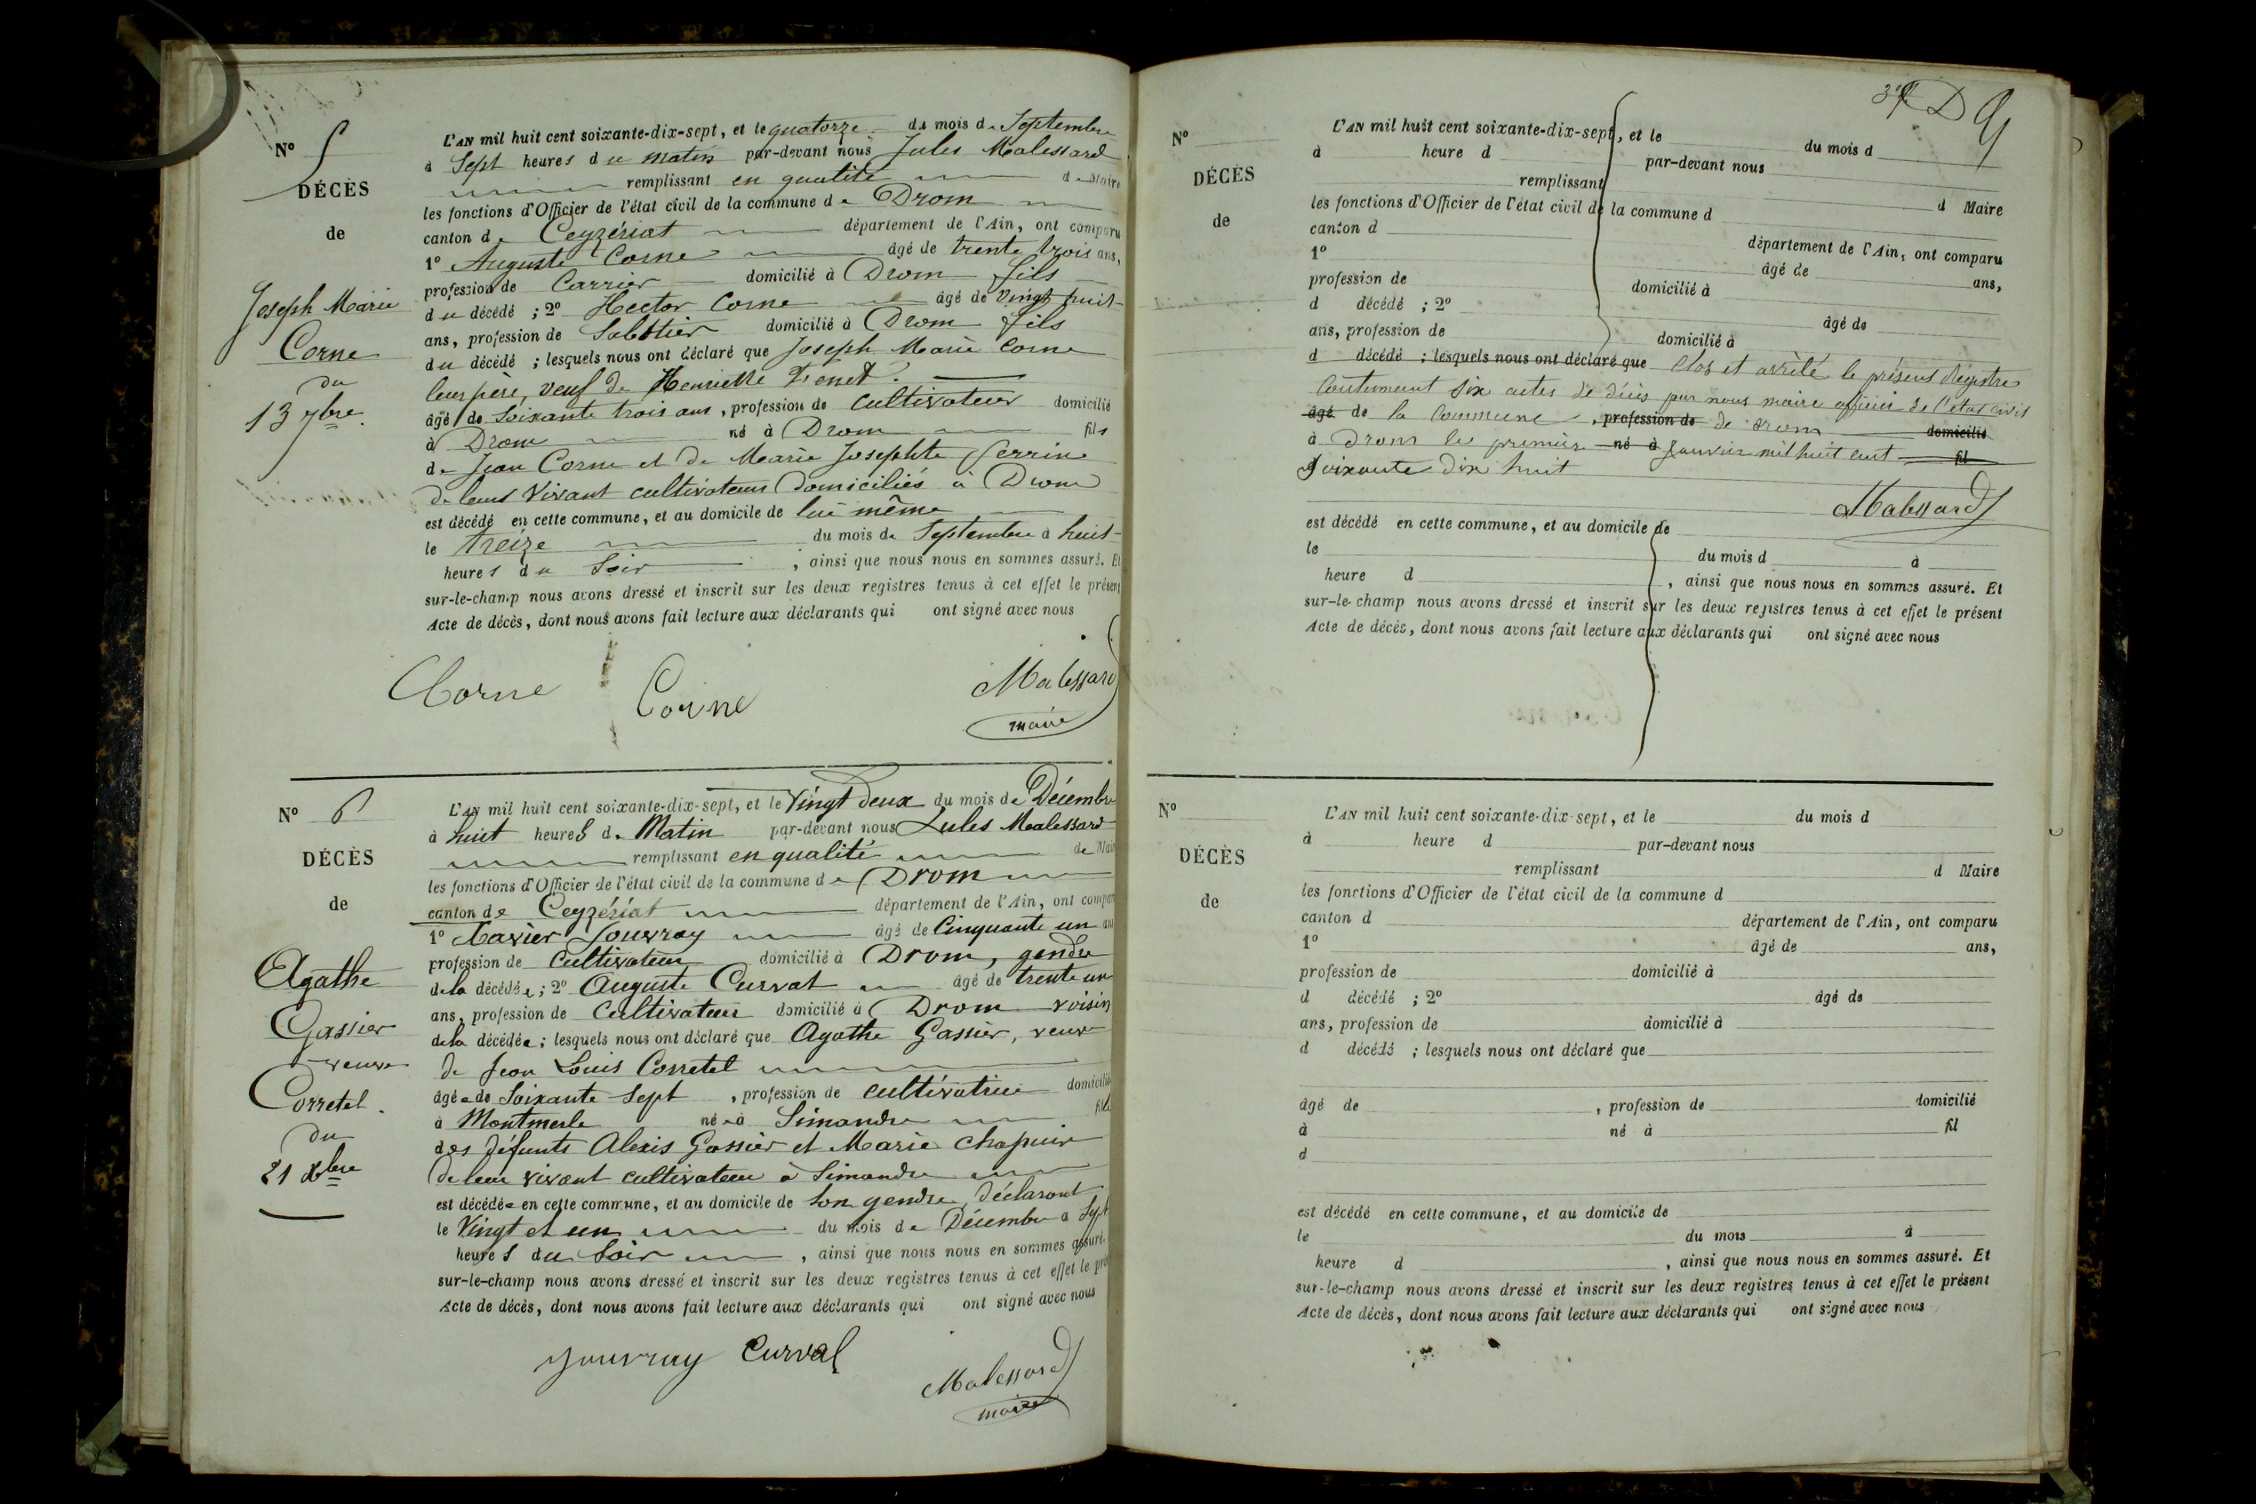 N° 5
DÉCÈS
de
Joseph Marie
Corne
du
13 7bre
L'AN mil huit cent soixante-dix-sept, et le quatorze du mois de Septembre
à Sept heures du matin par-devant nous Jules Malessard
remplissant en qualité de Maire
les fonctions d'Officier de l'état civil de la commune de Drom
canton de Ceyzériat département de l'Ain, ont comparu
1° Auguste Corne âgé de trente trois ans,
profession de Carrier domicilié à Drom fils
du décédé ; 2° Hector Corne âgé de vingt huit
ans, profession de Sabotier domicilié à Drom fils
du décédé ; lesquels nous ont déclaré que Joseph Marie Corne
leur père, veuf de Henriette
âgé de Soixante trois ans, profession de cultivateur domicilié
à Drom né à Drom fils
de Jean Corne et de Marie Josephte Perrin
de leur vivant cultivateurs domiciliés à Drom
est décédé en cette commune, et au domicile de lui même
le treize du mois de Septembre à huit
heures du Soir , ainsi que nous nous en sommes assuré. Et
sur-le-champ nous avons dressé et inscrit sur les deux registres tenus à cet effet le présent
Acte de décès, dont nous avons fait lecture aux déclarants qui ont signé avec nous
Corne Corne Malessard
maire
N° 6
DÉCÈS
de
Agathe
Gassier
veuve
Corretel.
du
21 Xbre
L'AN mil huit cent soixante-dix-sept, et le Vingt deux du mois de Décembre
à huit heures d. Matin par-devant nous Jules Malessard
remplissant en qualité de Mair
les fonctions d'Officier de l'état civil de la commune de Drom
canton de Ceyzériat département de l'Ain, ont compar
1° Xavier Jouvray âgé de Cinquante un an
profession de Cultivateur domicilié à Drom, gendre
de la décédée ; 2° Auguste Curvat âgé de trente un
ans, profession de Cultivateur domicilié à Drom voisin
de la décédée ; lesquels nous ont déclaré que Agathe Gassier, veuve
de Jean Louis Corretel
âgée de Soixante Sept , profession de cultivatrice domicilié
à Montmerle née à Simandre fille
des défunts Alexis Gassier et Marie Chapuis
de leur vivant cultivateur à Simandre
est décédée en cette commune, et au domicile de Son gendre, déclarant
le Vingt et un du mois de Décembre à Sept
heures du Soir , ainsi que nous nous en sommes assuré.
sur-le-champ nous avons dressé et inscrit sur les deux registres tenus à cet effet le pré
Acte de décès, dont nous avons fait lecture aux déclarants qui ont signé avec nous
Jouvray Curval Malessard
maire
D 9
N°
DÉCÈS
de
L'AN mil huit cent soixante-dix-sept, et le du mois d
à heure d par-devant nous
remplissant d Maire
les fonctions d'Officier de l'état civil de la commune d
canton d département de l'Ain, ont comparu
1° âgé de ans,
profession de domicilié à
d décédé ; 2° âgé de
ans, profession de domicilié à
d décédé ; lesquels nous ont déclaré que Clos et arrêté le présent Régistre
Contenant six actes de décès par nous maire officier de l'état civil
âgé de la commune , profession de de Drom domicilié
à Drom le premier né à Janvier mil huit cent fil
Soixante dix huit
Malessard
est décédé en cette commune, et au domicile de
le du mois d à
heure d , ainsi que nous nous en sommes assuré. Et
sur-le-champ nous avons dressé et inscrit sur les deux registres tenus à cet effet le présent
Acte de décès, dont nous avons fait lecture aux déclarants qui ont signé avec nous
N°
DÉCÈS
de
L'AN mil huit cent soixante-dix-sept, et le du mois d
à heure d par-devant nous
remplissant d Maire
les fonctions d'Officier de l'état civil de la commune d
canton d département de l'Ain, ont comparu
1° âgé de ans,
profession de domicilié à
d décédé ; 2° âgé de
ans, profession de domicilié à
d décédé ; lesquels nous ont déclaré que
âgé de , profession de domicilié
à né à fil
d
est décédé en cette commune, et au domicile de
le du mois à
heure d , ainsi que nous nous en sommes assuré. Et
sur-le-champ nous avons dressé et inscrit sur les deux registres tenus à cet effet le présent
Acte de décès, dont nous avons fait lecture aux déclarants qui ont signé avec nous